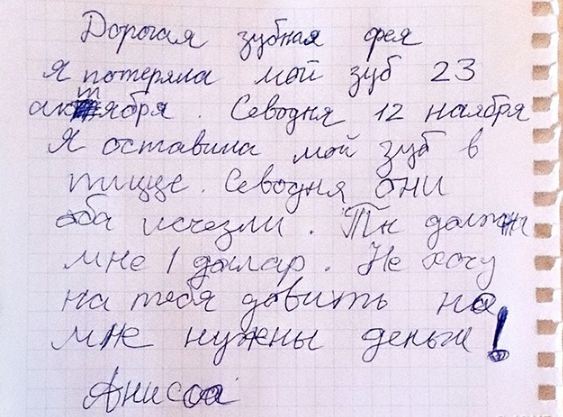 Дорогая зубная фея
Я потеряла мой зуб 23
актября. Севодня 12 наября
Я оставила мой зуб в
пицце. Севодня они
оба исчезли. Ты должны
мне 1 долар. Не хочу
на тебя довить но
мне нужны деньги!
Аниса